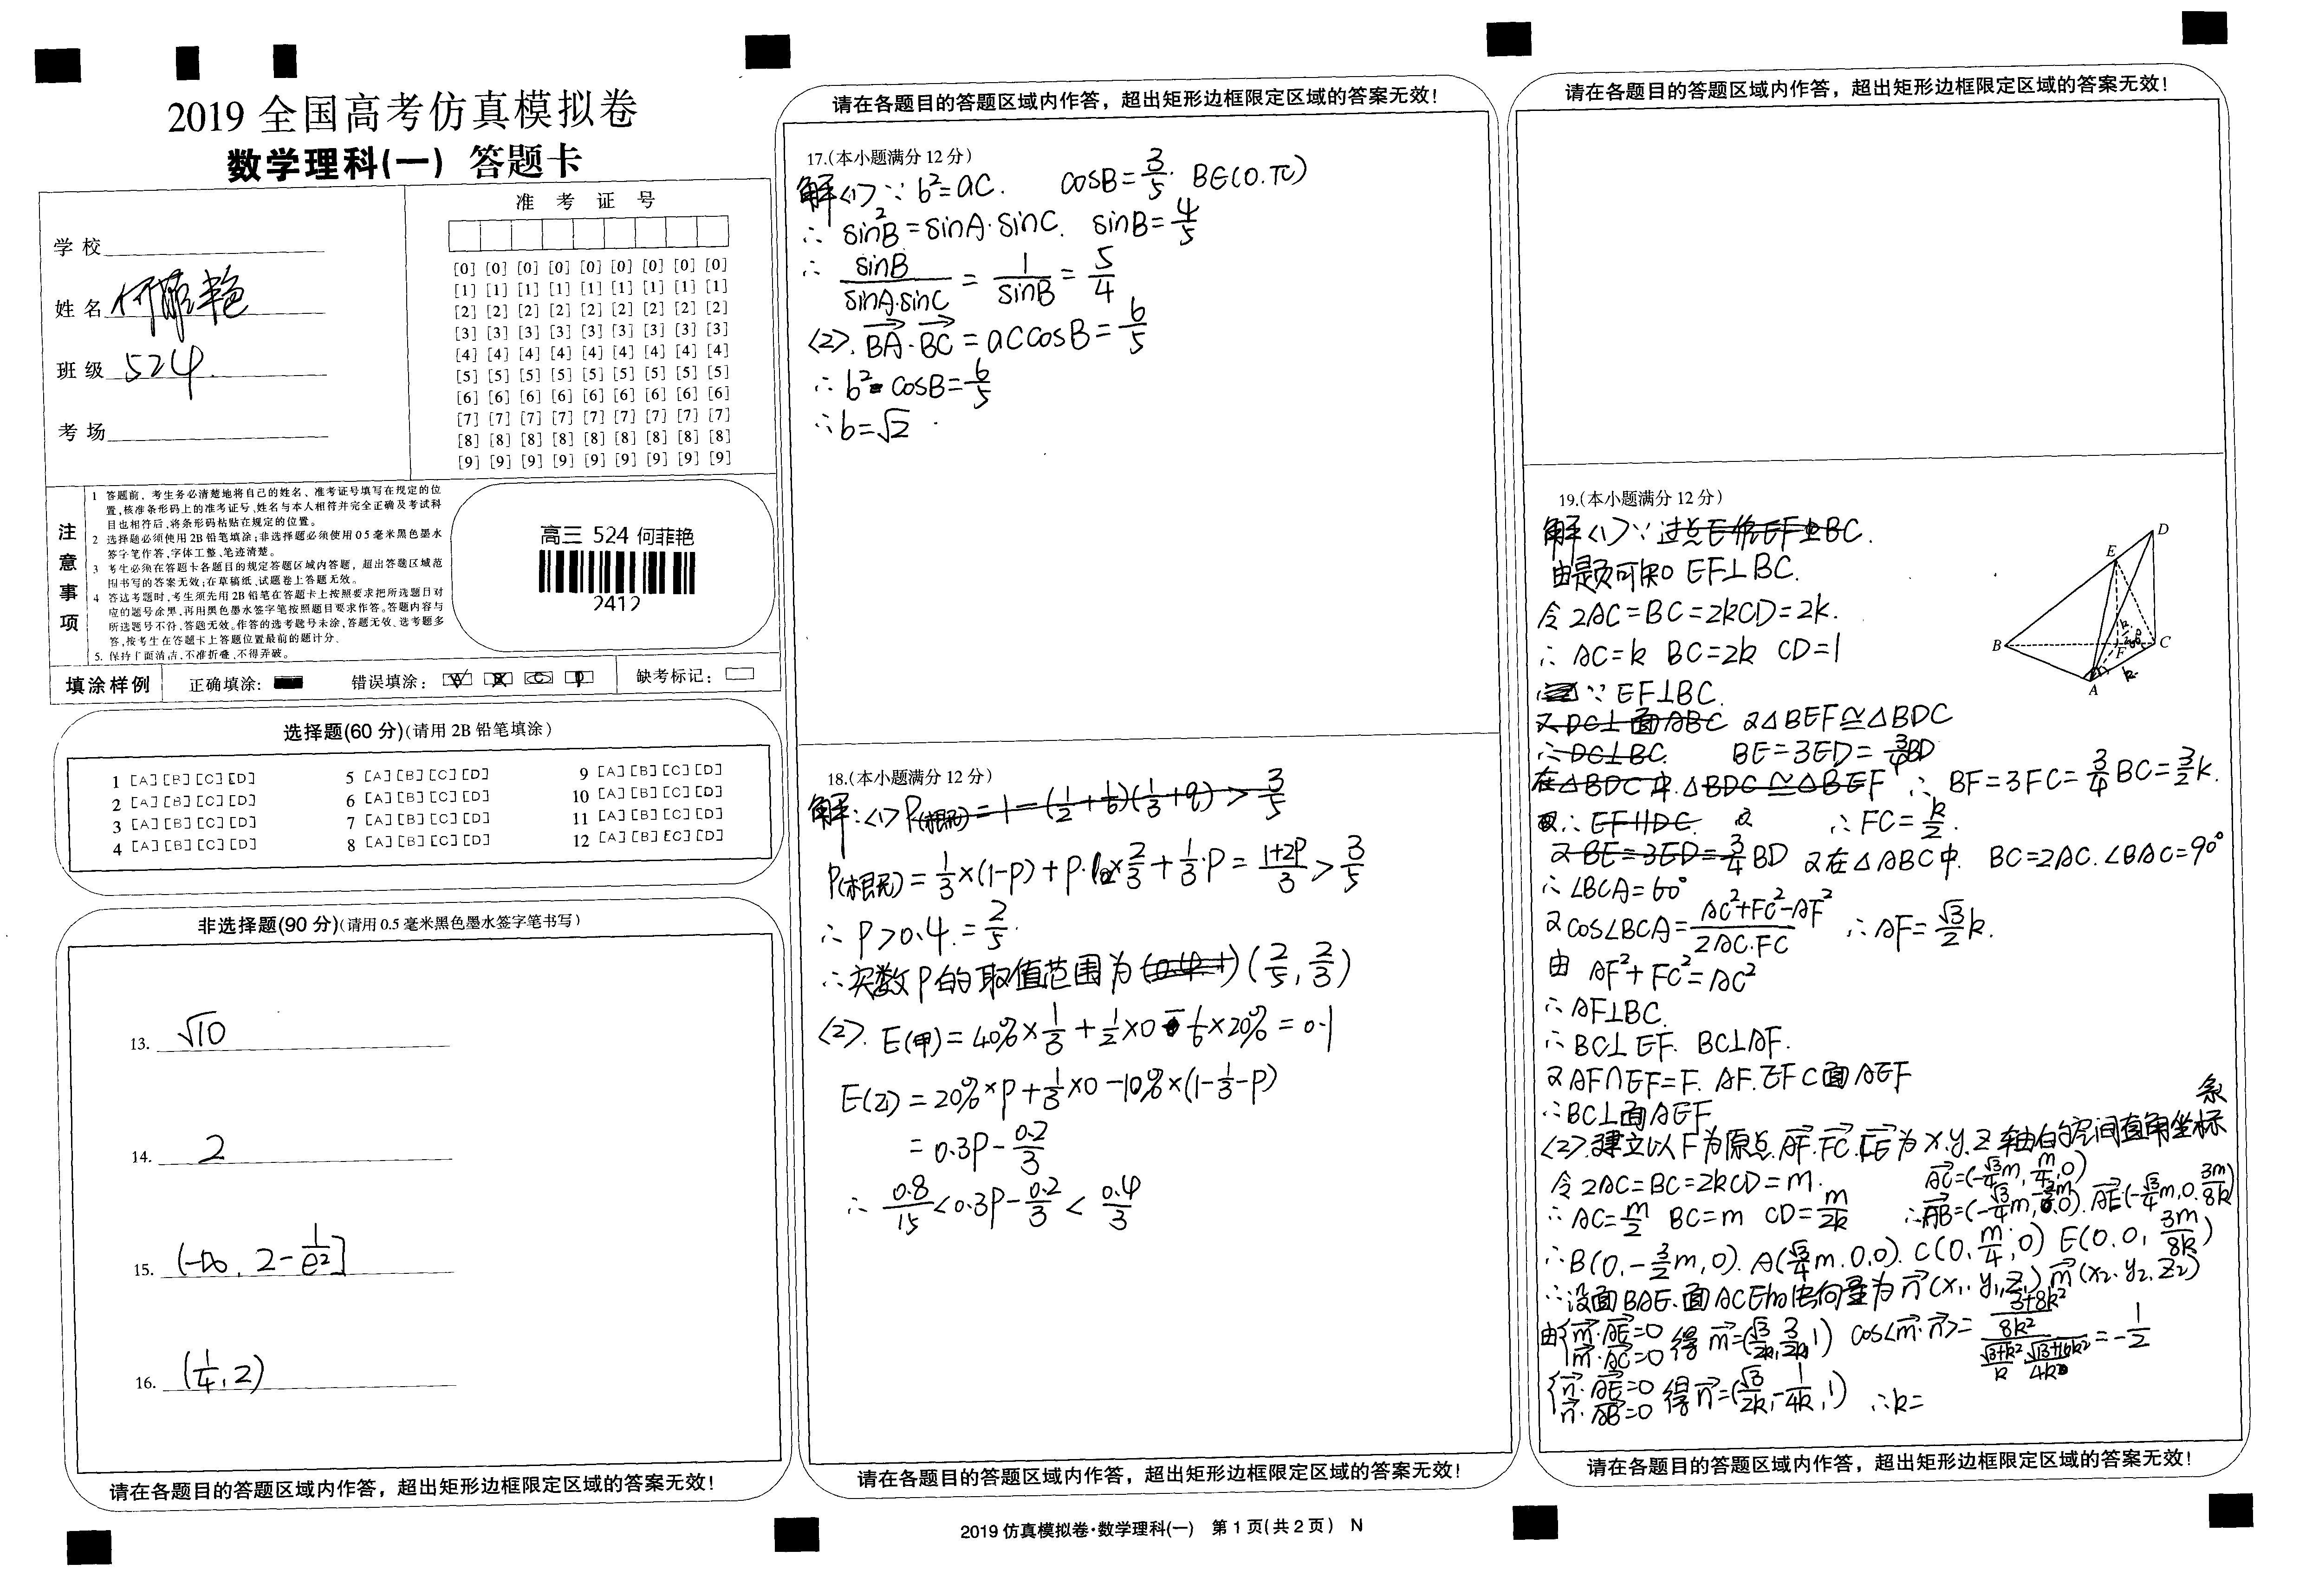 2019 全国高考仿真模拟卷
数学理科(一) 答题卡
学校
姓名 何菲艳
班级 524.
考场
准 考 证 号
[0] [0] [0] [0] [0] [0] [0] [0] [0]
[1] [1] [1] [1] [1] [1] [1] [1] [1]
[2] [2] [2] [2] [2] [2] [2] [2] [2]
[3] [3] [3] [3] [3] [3] [3] [3] [3]
[4] [4] [4] [4] [4] [4] [4] [4] [4]
[5] [5] [5] [5] [5] [5] [5] [5] [5]
[6] [6] [6] [6] [6] [6] [6] [6] [6]
[7] [7] [7] [7] [7] [7] [7] [7] [7]
[8] [8] [8] [8] [8] [8] [8] [8] [8]
[9] [9] [9] [9] [9] [9] [9] [9] [9]
注意事项
1 答题前，考生务必清楚地将自己的姓名、准考证号填写在规定的位
置,核准条形码上的准考证号、姓名与本人相符并完全正确及考试科
目也相符后,将条形码粘贴在规定的位置。
2 选择题必须使用2B铅笔填涂;非选择题必须使用05毫米黑色墨水
签字笔作答,字体工整、笔迹清楚。
3 考生必须在答题卡各题目的规定答题区域内答题，超出答题区域范
围书写的答案无效;在草稿纸、试题卷上答题无效。
4 答选考题时,考生须先用2B铅笔在答题卡上按照要求把所选题目对
应的题号涂黑,再用黑色墨水签字笔按照题目要求作答。答题内容与
所选题号不符,答题无效。作答的选考题号未涂,答题无效、选考题多
答,按考生在答题卡上答题位置最前的题计分。
5. 保持卡面清洁,不准折叠、不得弄破。
高三 524 何菲艳
2412
填涂样例 正确填涂: 错误填涂: 缺考标记:
选择题(60 分)(请用 2B 铅笔填涂)
1 [A] [B] [C] [D] 5 [A] [B] [C] [D] 9 [A] [B] [C] [D]
2 [A] [B] [C] [D] 6 [A] [B] [C] [D] 10 [A] [B] [C] [D]
3 [A] [B] [C] [D] 7 [A] [B] [C] [D] 11 [A] [B] [C] [D]
4 [A] [B] [C] [D] 8 [A] [B] [C] [D] 12 [A] [B] [C] [D]
非选择题(90 分)(请用 0.5 毫米黑色墨水签字笔书写)
13. √10
14. 2
15. (-∞, 2-1/e²]
16. (1/4, 2)
请在各题目的答题区域内作答，超出矩形边框限定区域的答案无效！
请在各题目的答题区域内作答，超出矩形边框限定区域的答案无效！
17.(本小题满分 12 分)
解<1>∵ b²=ac. cosB=3/5. B∈(0.π)
∴ sin²B=sinA·sinC. sinB=4/5
∴ sinB/(sinA·sinC) = 1/sinB = 5/4
<2>. BA·BC = accosB = 6/5
∴ b² cosB=6/5
∴ b=√2 .
18.(本小题满分 12 分)
解:<1> P(相册) = 1-(1/2+1/6)(1/3+q) > 3/5
= 1/3×(1-p)+p·×2/3+1/3·p = (1+2p)/3 > 3/5
∴ p>0.4.=2/5.
∴ 实数 p 的取值范围为 (2/5, 2/3)
<2>. E(甲)=40%×1/3+1/2×0-1/6×20%=0.1
E(乙)=20%×p+1/3×0-10%×(1-1/3-p)
=0.3p-0.2/3
∴ 0.8/15<0.3p-0.2/3<0.4/3
请在各题目的答题区域内作答，超出矩形边框限定区域的答案无效！
2019 仿真模拟卷·数学理科(一) 第 1 页(共 2 页) N
请在各题目的答题区域内作答，超出矩形边框限定区域的答案无效！
19.(本小题满分 12 分)
解<1>∵过点E作EF⊥BC.
由题可知 EF⊥BC.
令 2AC=BC=2kCD=2k.
∴ AC=k BC=2k CD=1
∵ EF⊥BC.
又DC⊥面ABC 又△BEF≅△BDC
∴DC⊥BC. BE=3ED=3/4BD
在△BDC中.△BDC≅△BEF ∴ BF=3FC=3/4BC=3/2k.
∴EF∥DC. 又 ∴FC=k/2.
又BE=3ED=3/4BD 又在△ABC中. BC=2AC.∠BAC=90°
∴∠BCA=60°
又cos∠BCA=(AC²+FC²-AF²)/(2AC·FC) ∴AF=√3/2k.
由 AF²+FC²=AC²
∴AF⊥BC.
∴BC⊥EF. BC⊥AF.
又AF∩EF=F. AF.EF⊂面AEF
∴BC⊥面AEF
<2>.建立以F为原点.AF.FC.FE为x.y.z轴的空间直角坐标系
令2AC=BC=2kCD=m. AC=(-√3/4m, m/4, 0)
∴AC=m/2 BC=m CD=m/2k
AE(-√3/4m, 0. 3m/8k)
∴B(0.-3/2m, 0). A(√3/4m. 0.0). C(0, m/4, 0) E(0.0, 3m/8k)
∴设面BAE.面ACE的法向量为n(x₁.y₁,z₁) m(x₂.y₂.z₂)
由{m·AE=0 m·AC=0 得 m=(√3/2k, 3/2k, 1) cos<m·n>=(3+8k²)/8k² = -1/2
{n·AE=0 n·AB=0 得n=(√3/2k, -1/4k, 1) ∴k=
D
E
B
C
F
A
请在各题目的答题区域内作答，超出矩形边框限定区域的答案无效！